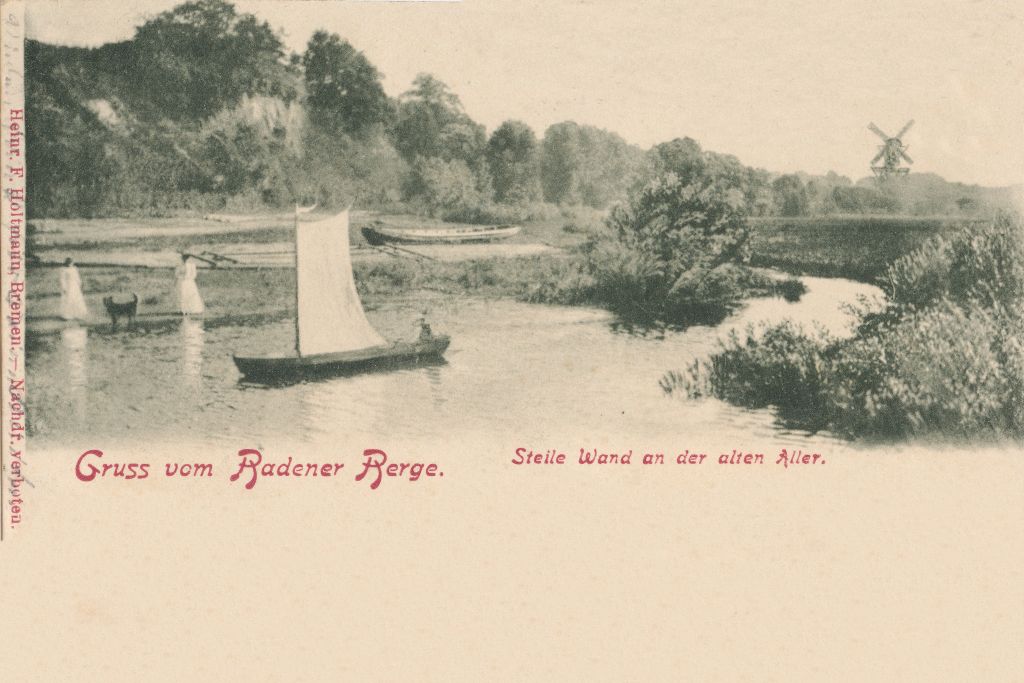 Gruss vom Badener Berge.
Steile Wand an der alten Aller.
Heinr. F. Holtmann, Bremen. — Nachdr. verboten.